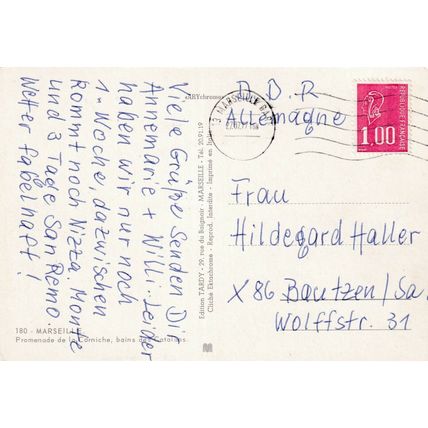 Viele Grüße senden Dir
Annemarie + Willi. Leider
haben wir nur noch
1. Woche, dazwischen
kommt noch Nizza, Monte
und 3 Tage San Remo.
Wetter fabelhaft!
180 - MARSEILLE
Promenade de la Corniche, bains des Catalans
Edition TARDY - 29, rue du Baignoir - MARSEILLE - Tél. 20.91.19
Cliché Ektachrome - Reprod. Interdite - Imprimé en
MARSEILLE
D.D.R
Allemagne
REPUBLIQUE FRANÇAISE
1,00
Frau
Hildegard Haller
X 86 Bautzen/Sa.
Wolffstr. 31